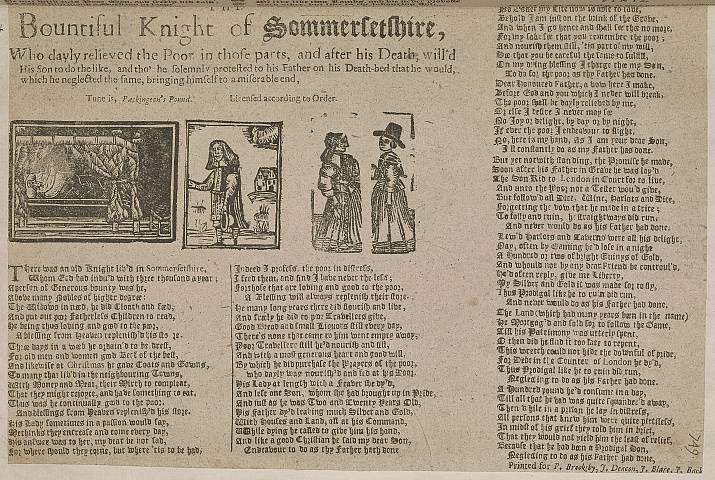 THE
Bountiful Knight of Sommersetshire,
Who dayly relieved the Poor in those parts, and after his Death, will'd
His Son to do the like, and tho' he solemnly protested to his Father on his Death-bed that he would,
which he neglected the same, bringing himself to a miserable end,
Tune is, Packington's Pound. Licensed according to Order.
There was an old Knight liv'd in Sommersetshire,
Whom God had indu'd with three thousand a year;
A person of Generous bounty was he,
Above many Nobles of higher degree:
The Widows in need, he did Cloath and feed;
And put out poor Fatherless Children to read,
He being thus loving and good to the poor,
A blessing from Heaven replenish'd his store.
Three days in a week he ordain'd to be drest,
For old men and women good Beef of the best,
And likewise at Christmas he gave Coats and Gowns,
To many that liv'd in the neighbouring Towns,
With Money and Meat, their Mirth to compleat,
That they might rejoyce, and have something to eat,
Thus was he continually good to the poor,
And blessings from Heaven replenish'd his store.
His Lady sometimes in a passion would say,
Methinks they encrease and come every day,
His answer was to her, my dear be not sad,
For where should they come, but where 'tis to be had,
Indeed I profess, the poor in distress,
I feed them, and find I have never the less;
For those that are loving and good to the poor,
A Blessing will always replenish their store.
He many long years did flourish and live,
And freely he did to poor Travellers give,
Good Bread and small Liquors still every day,
There's none that came to him went empty away;
Poor Travellers still he'd nourish and fill,
And with a most generous heart and good will,
By which he did purchase the Prayers of the poor,
who dayly way nourish'd and fed at his Door.
His Lady at length with a Feaver she dy'd,
And left one Son, whom she had brought up in Pride,
And just as he was Two and Twenty Years Old,
His Father dy'd leaving much Silver and Gold,
With Houses and Land, all at his Command,
While dying he called to give him his hand,
And like a good Christian he said my dear Son,
Endeavour to do as thy Father hath done
Behold I am just on the brink of the Grave,
And when I go hence and shall see thee no more,
For my sake see that you remember the poor;
And nourish them still, 'tis part of my will,
See that you be careful the same to fulfill,
On my dying blessing I charge thee my Son,
To do for the poor as thy Father has done.
Dear Honoured Father, a vow here I make,
Before God and you which I never will break,
The poor shall be dayly relieved by me,
Or else I desire I never may see
No Joy or delight, by day or by night,
If ever the poor I endeavour to slight,
No, here is my hand, As I am your dear Son,
I'll constantly do as my Father has done.
But yet notwithstanding, the Promise he made,
Soon after his Father in Grave he was lay'd
The Son Rid to London in Court for to live,
And unto the Poor not a Tester wou'd give,
But follow'd all Vice, Wine, Harlots and Dice,
Forgetting the vow that he made in a trice;
To folly and ruin, he straightways did run,
And never would do as his Father had done.
Lewd Harlots and Taverns were all his delight,
Nay, often by Gaming he'd lose in a night
A Hundred or two of bright Guinys of Gold,
And whould not by any dear Friend be controul'd,
He'd often reply, give me Liberty,
My Silver and Gold it was made for to fly,
Thus Prodigal like he to ruin did run,
And never would do as his Father had done.
The Land (which had many years been in the name)
He Mortgag'd and sold for to follow the Game,
Till his Patrimony was utterly spent,
O then he did find it too late to repent,
This wretch could not hide the downfal of pride,
For Debt in the Counter of London he ly'd,
Thus Prodigal like he to ruin did run,
Neglecting to do as his Father had done.
A Hundred pound he'd consume in a day,
Till all that he had was quite squander'd away,
Then while in a prison he lay in distress,
All persons that knew him were quite pittiless,
In midst of his grief they told him in brief,
That they would not yield him the least of relief,
Because that he had been a Prodigal Son,
Neglecting to do as his Father had done,
Printed for P. Brooksby, J. Deacon, J. Blare, J. Back
249